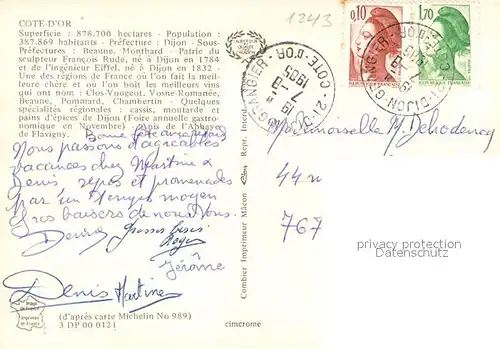 COTE-D'OR
Superficie : 878.700 hectares - Population :
387.869 habitants - Préfecture : Dijon - Sous-
Préfectures : Beaune, Montbard - Patrie du
sculpteur François Rude, né à Dijon en 1784
et de l'Ingénieur Eiffel, né à Dijon en 1832 -
Une des régions de France où l'on fait la meil-
leure chère et où l'on boit les meilleurs vins
qui ont nom : Clos-Vougeot, Vosne-Romanée,
Beaune, Pommard, Chambertin - Quelques
spécialités régionales : cassis, moutarde et
pains d'épices de Dijon (Foire annuelle gastro-
nomique en Novembre) Anis de l'Abbaye
de Flavigny.
Bonne fête
Nous passons d'agréables
vacances chez Martine &
Denis repos et promenades
par un temps moyen
Gros baisers de nous tous.
Denise
Grosses bises
Roger
Jérôme
Denis Martine
Image de France
Imprimée en France
(d'après carte Michelin No 989)
3 DP 00 0121
cimcrome
Combier Imprimeur Mâcon Cim Repr. Interd.
1243
0,10
1,70
21-DIJON-GRANGIER-COTE-D'OR
1985
Mademoiselle M. Dehodencq
44
767
privacy protection
Datenschutz